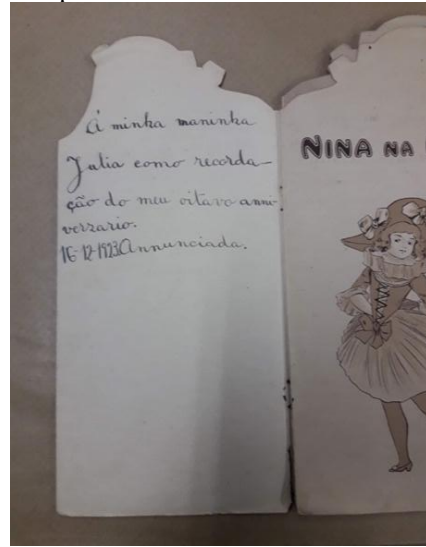 Á minha maninha
Julia como recorda-
ção do meu oitavo anni
verzario.
16-12-1923 Annunciada.
NINA NA